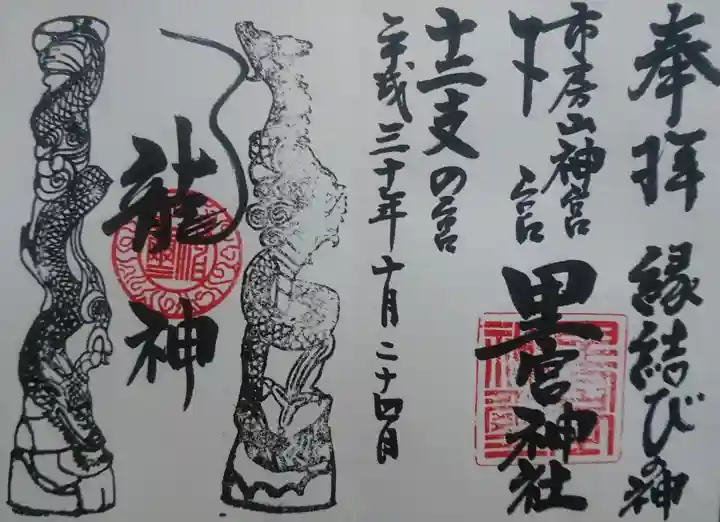 奉拝 縁結びの神
市房山神宮
下宮 里宮神社
十二支の宮
平成三十年十月二十四日
龍神